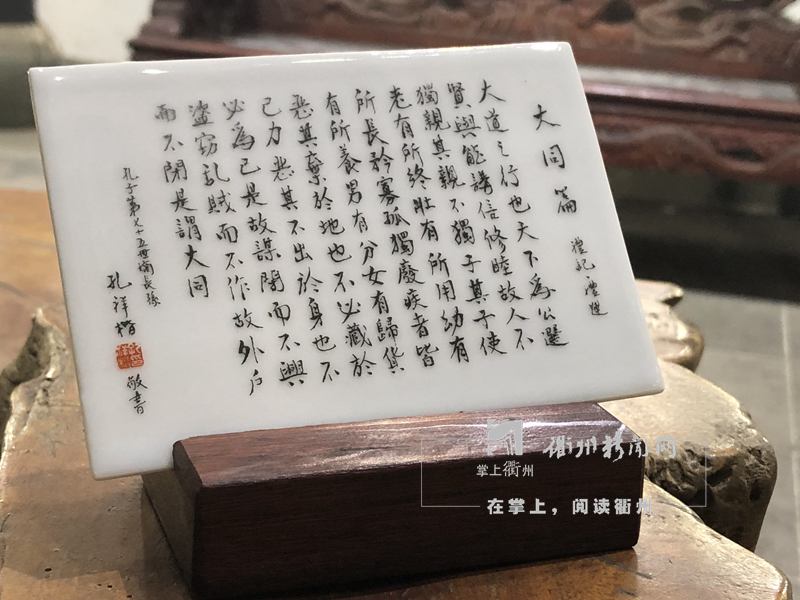 大同篇 禮記禮運
大道之行也天下為公選
賢與能講信修睦故人不
獨親其親不獨子其子使
老有所終壯有所用幼有
所長矜寡孤獨廢疾者皆
有所養男有分女有歸貨
惡其棄於地也不必藏於
己力惡其不出於身也不
必為己是故謀閉而不興
盜竊亂賊而不作故外戶
而不閉是謂大同
孔子第七十五世嫡長孫
孔祥楷 敬書
掌上衢州
衢州新闻网
在掌上，阅读衢州